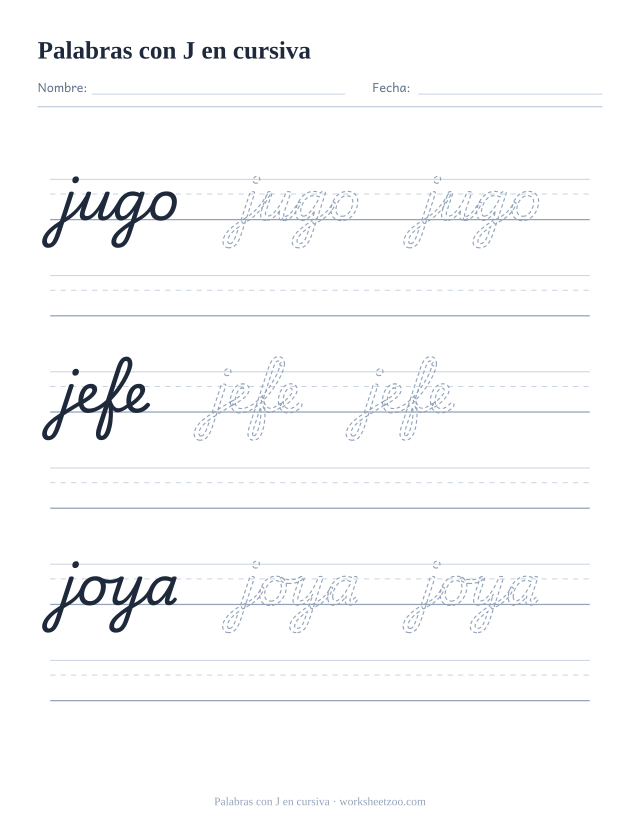 Palabras con J en cursiva
Nombre: Fecha:
jugo jugo jugo
jefe jefe jefe
joya joya joya
Palabras con J en cursiva · worksheetzoo.com